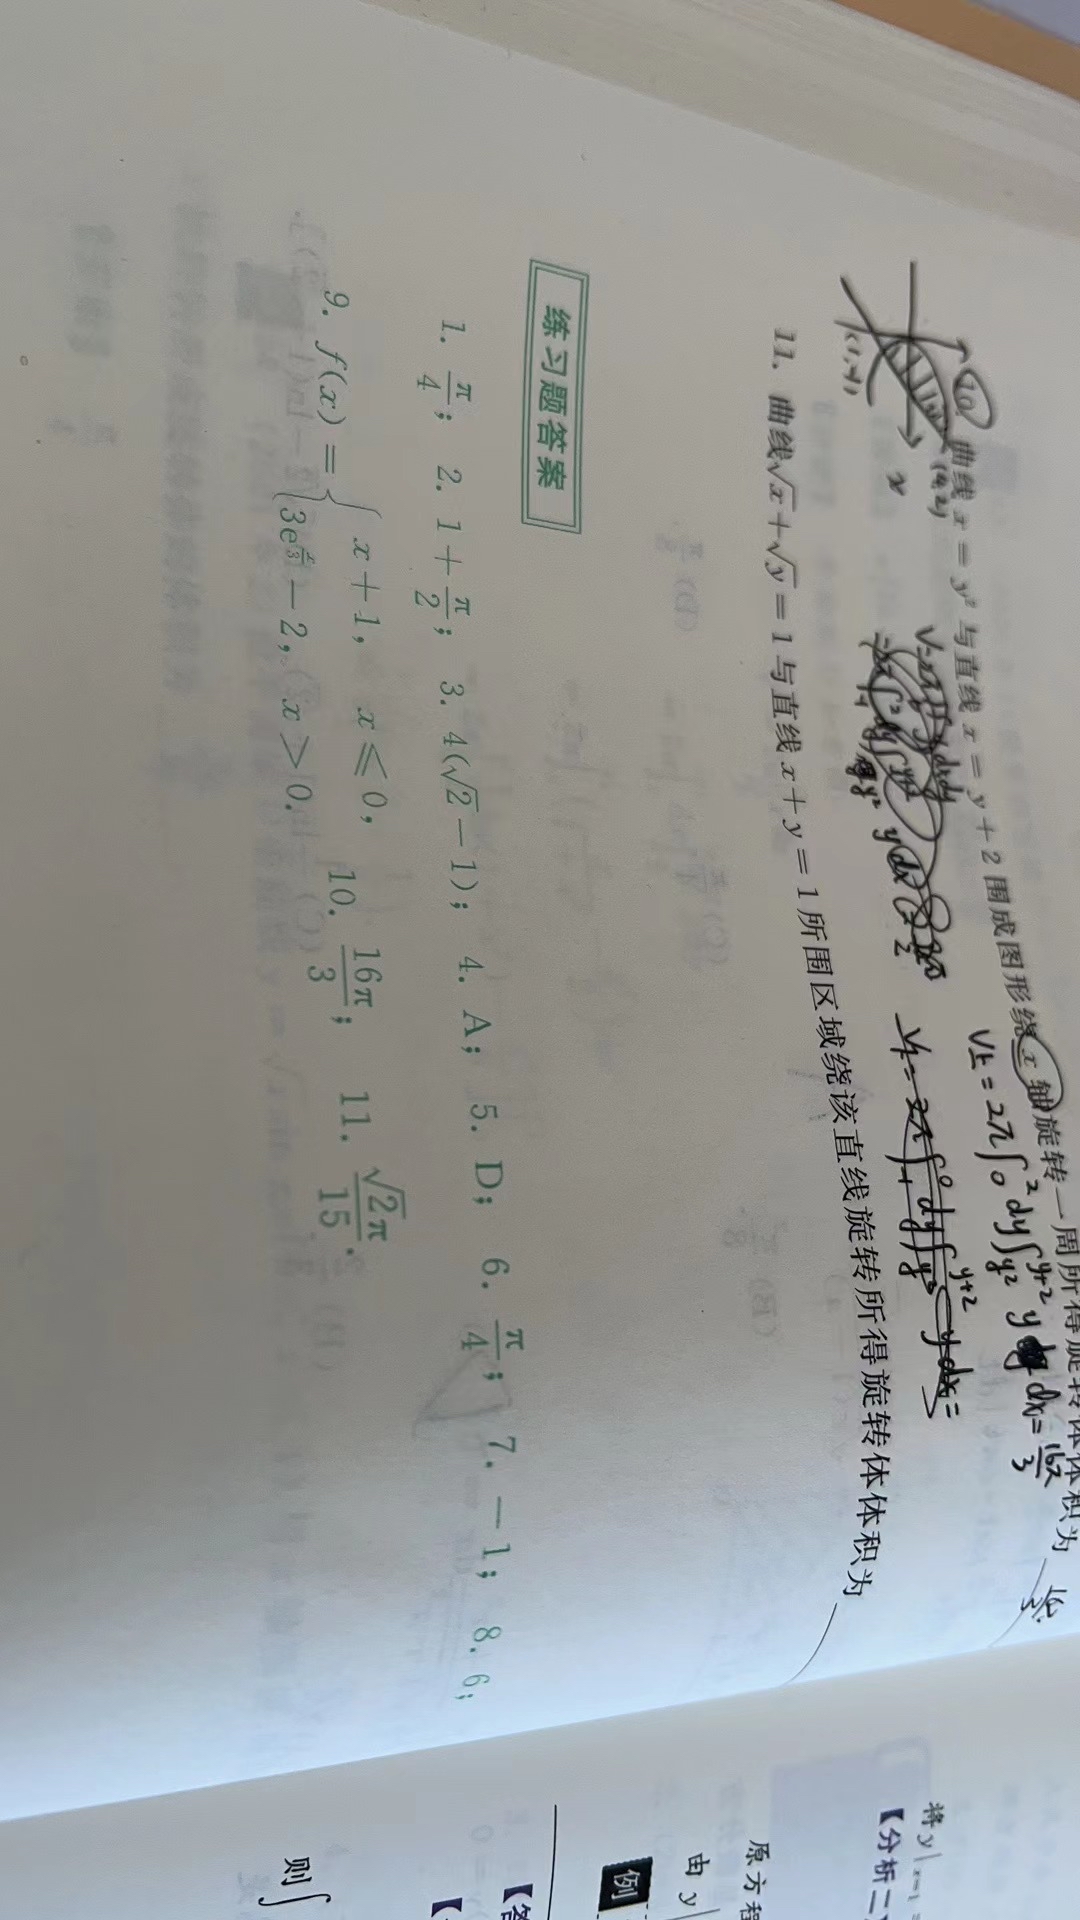 10. 曲线 x = y² 与直线 x = y + 2 围成图形绕 x 轴旋转一周所得旋转体体积为
(4,2)
x
(1,-1)
V上 = 2π∫₀² dy∫_{y²}^{y+2} y dx = 16π/3
11. 曲线 √x + √y = 1 与直线 x + y = 1 所围区域绕该直线旋转所得旋转体体积为
练习题答案
1. π/4; 2. 1 + π/2; 3. 4(√2 − 1); 4. A; 5. D; 6. π/4; 7. −1; 8. 6;
9. f(x) = { x + 1, x ⩽ 0, 3e^{x/3} − 2, x > 0. 10. 16π/3; 11. √2π/15.
将 y|ₓ₌₁ =
【分析二
原方程
由 y
例
【答
则∫